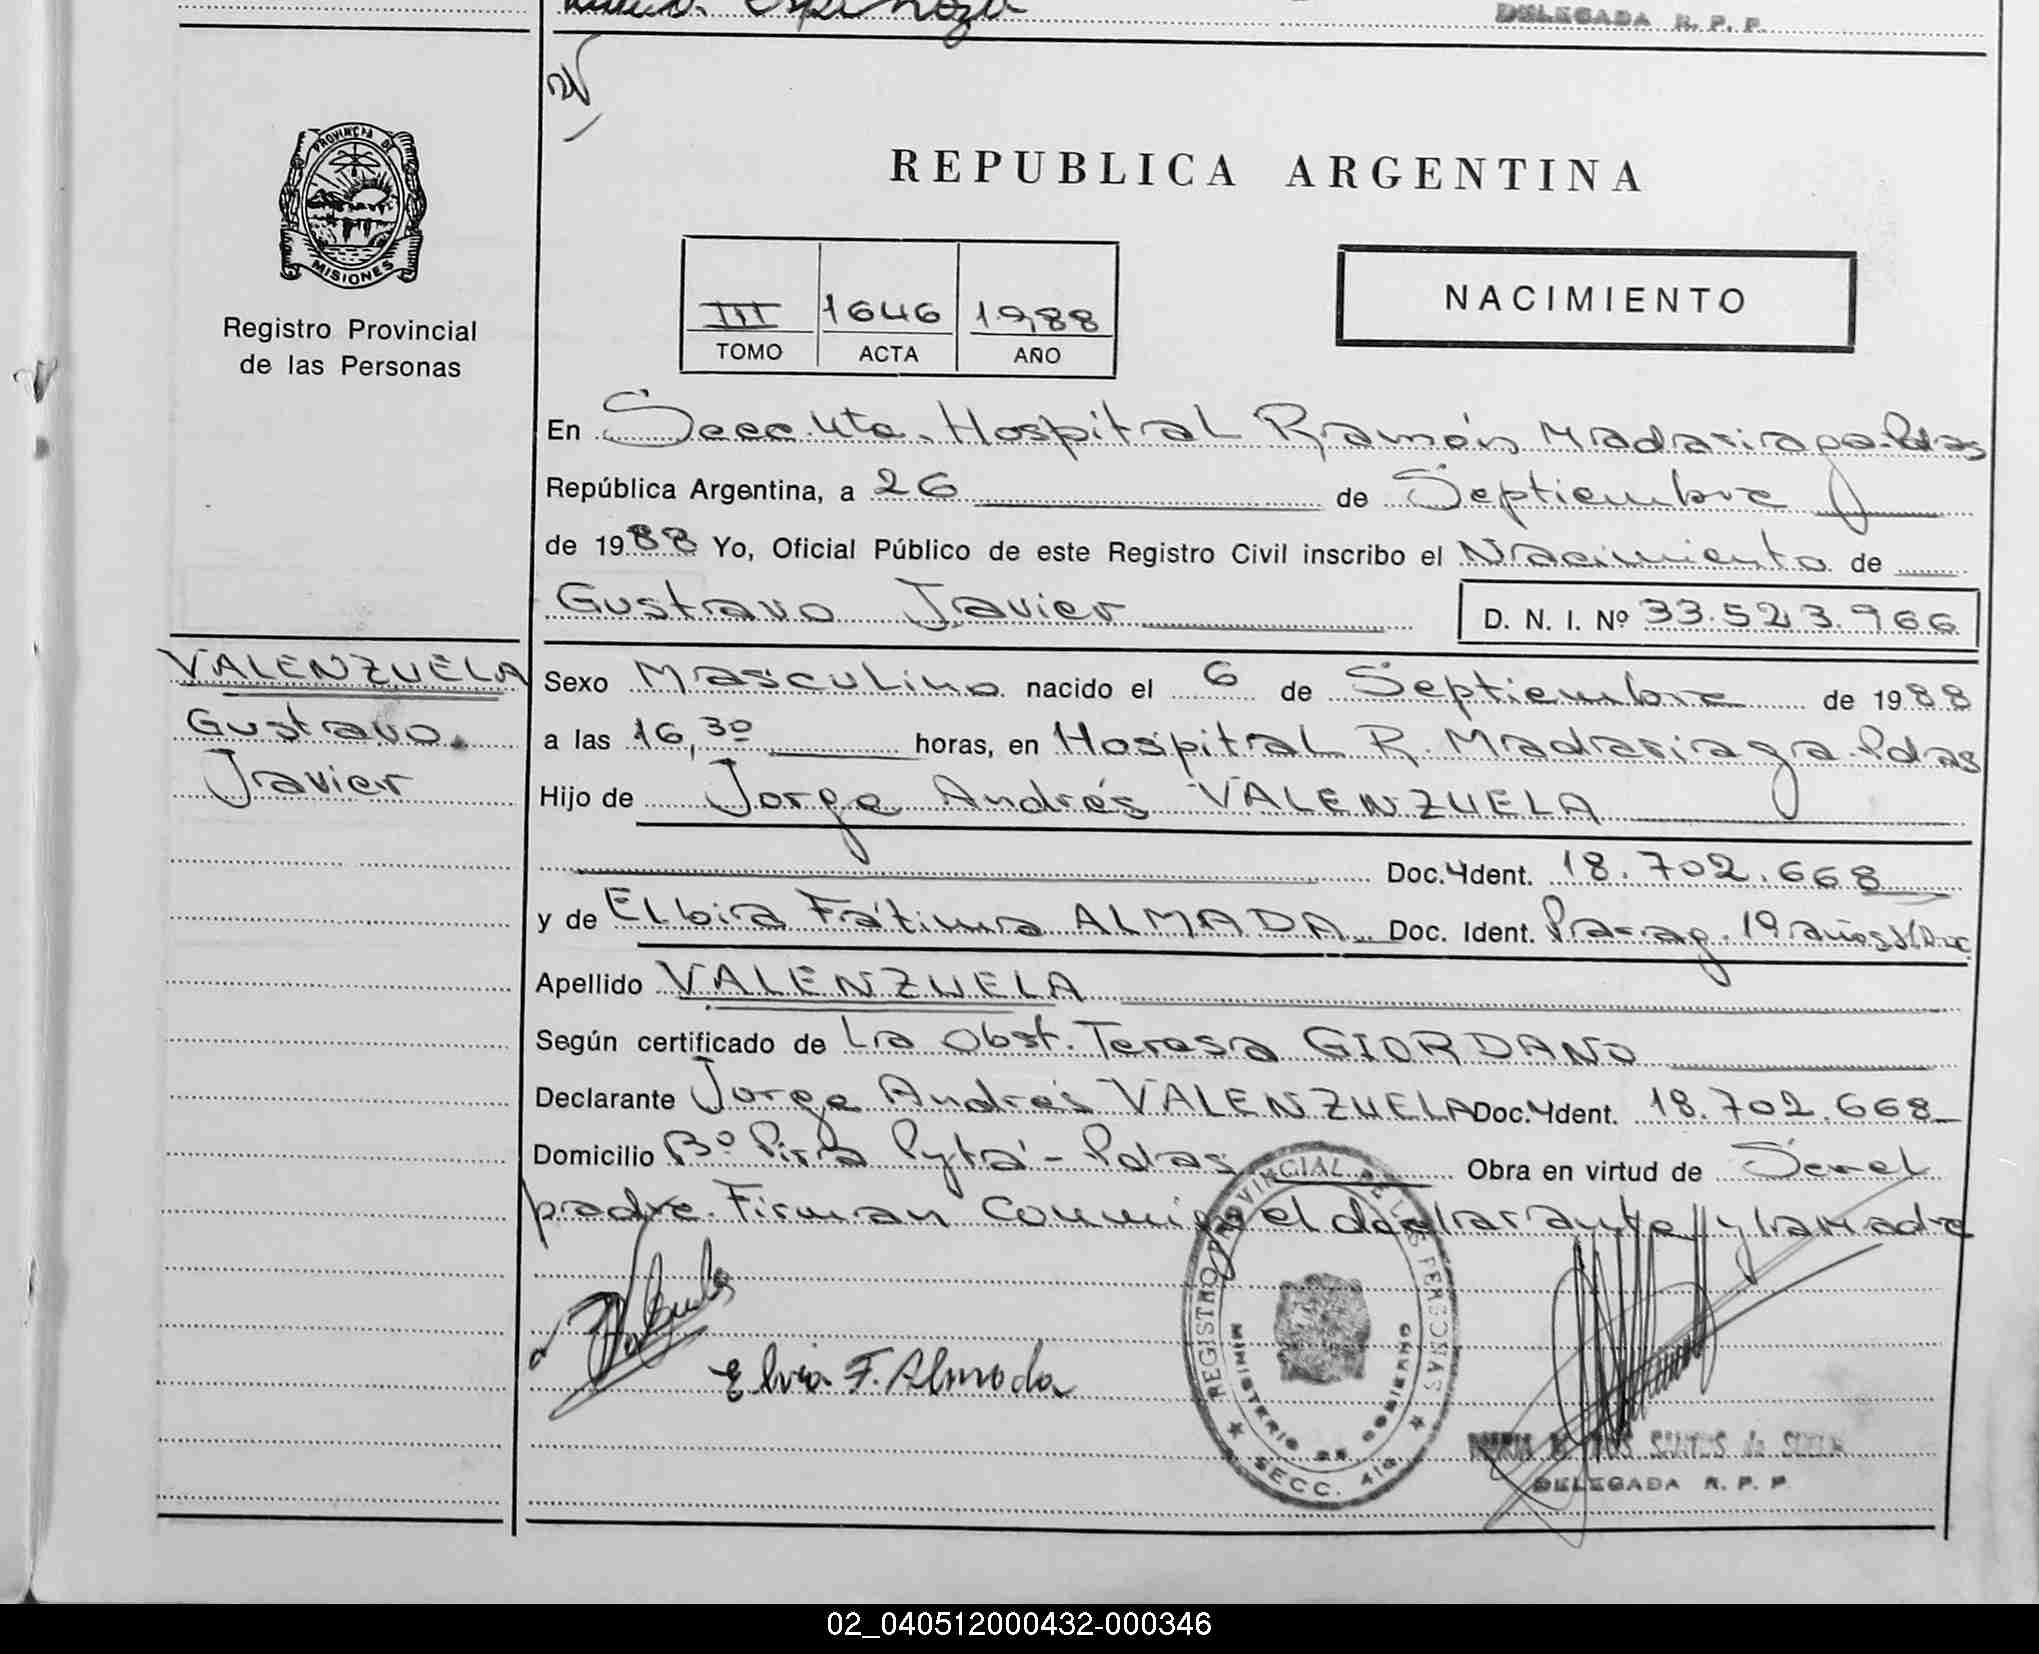 Espinoza
DELEGADA R. P. P.
PROVINCIA DE
MISIONES
Registro Provincial
de las Personas
REPUBLICA ARGENTINA
III 1646 1988
TOMO ACTA AÑO
NACIMIENTO
En Secc. 4ta. Hospital Ramón Madariaga-Pdas
República Argentina, a 26 de Septiembre
de 1988 Yo, Oficial Público de este Registro Civil inscribo el Nacimiento de
Gustavo Javier
D. N. I. Nº 33.523.966
VALENZUELA
Gustavo
Javier
Sexo Masculino nacido el 6 de Septiembre de 1988
a las 16,30 horas, en Hospital R. Madariaga-Pdas
Hijo de Jorge Andrés VALENZUELA
Doc. Ident. 18.702.668
y de Elbia Fátima ALMADA Doc. Ident. Parag. 19 años s/Doc
Apellido VALENZUELA
Según certificado de La Obst. Teresa GIORDANO
Declarante Jorge Andrés VALENZUELA Doc. Ident. 18.702.668
Domicilio Bº Pirá Pytá - Pdas Obra en virtud de Ser el
padre. Firman conmigo el declarante y la Madre
Elvia F. Almada
REGISTRO PROVINCIAL DE LAS PERSONAS
MINISTERIO DE GOBIERNO
SECC. 4ta
SANTOS de
DELEGADA R. P. P.
02_040512000432-000346